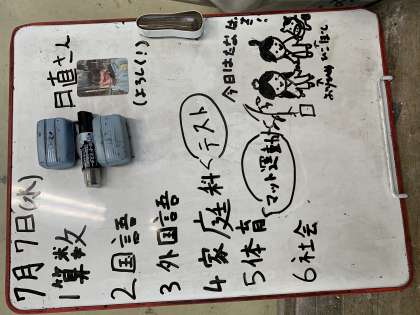 7月7日(水)
日直さん
(よろしく!)
1算数
2国語
3外国語
4家庭科<テスト
5体育<マット運動
6社会
今日はたなばた